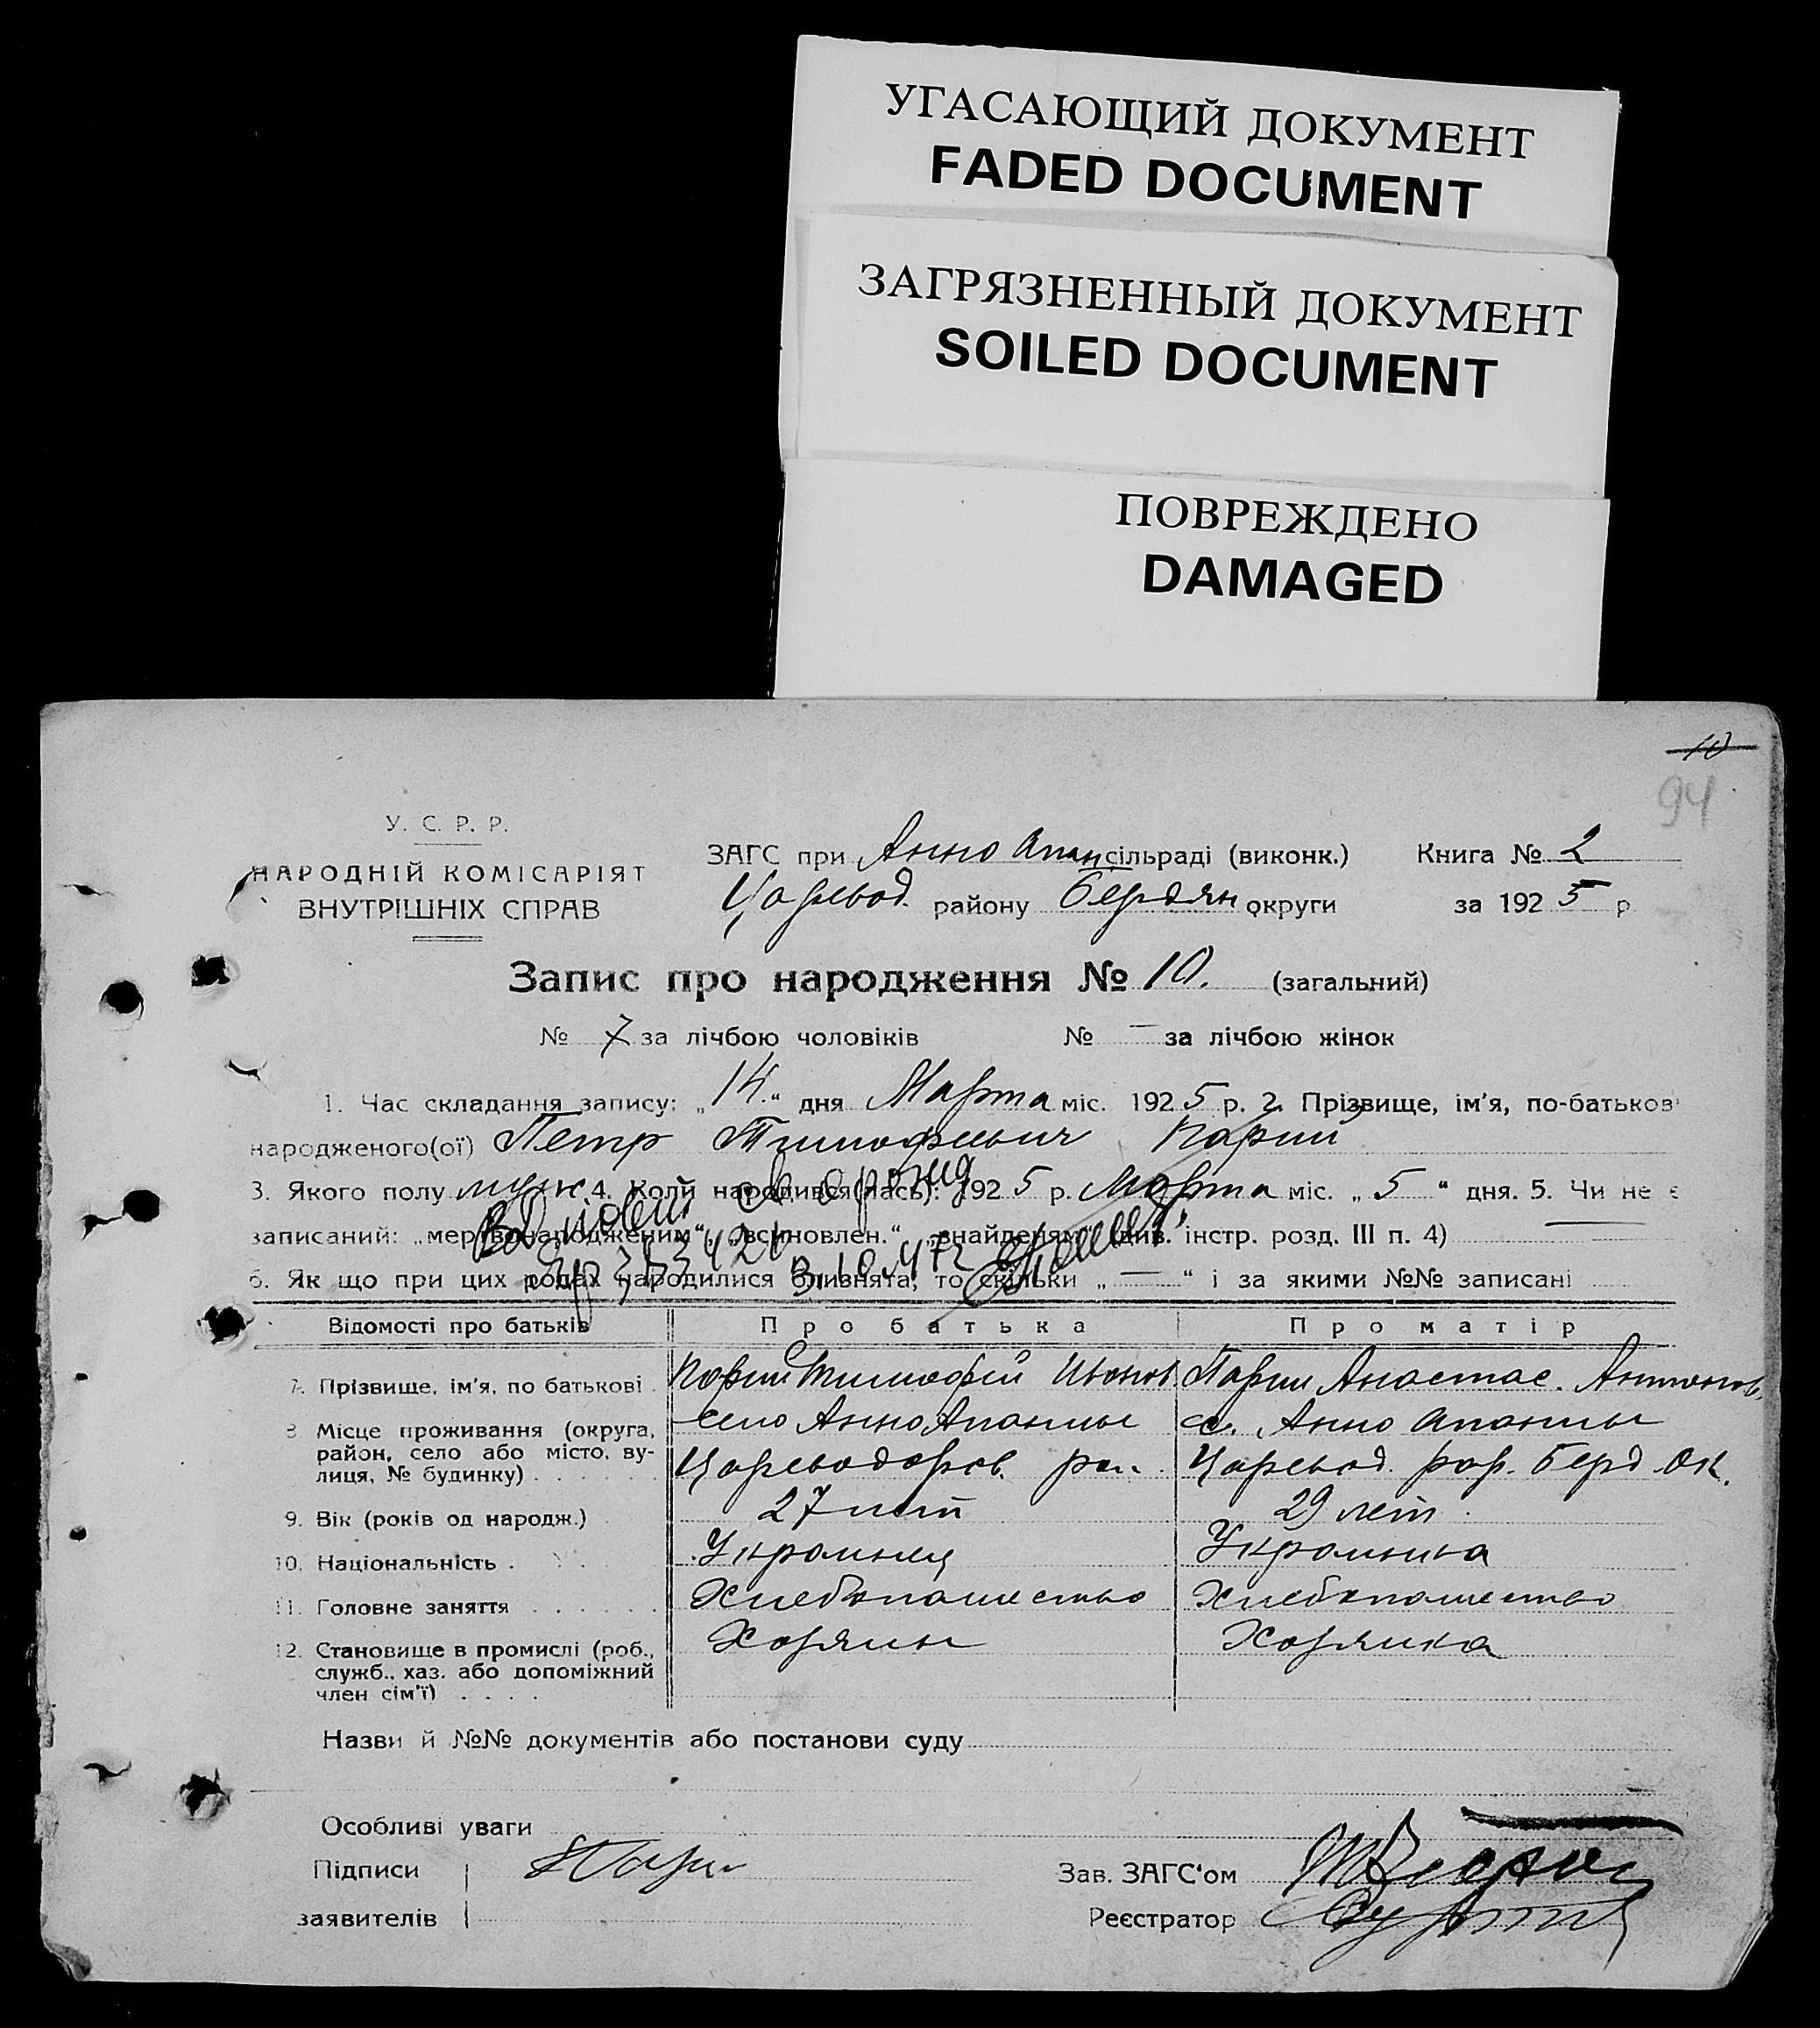 УГАСАЮЩИЙ ДОКУМЕНТ
FADED DOCUMENT
ЗАГРЯЗНЕННЫЙ ДОКУМЕНТ
SOILED DOCUMENT
ПОВРЕЖДЕНО
DAMAGED
10
94
У. С. Р. Р.
НАРОДНІЙ КОМІСАРІЯТ
ВНУТРІШНІХ СПРАВ
ЗАГС при Анно Апан сільраді (виконк.) Книга № 2
Царевод. району Бердян округи за 1925 р.
Запис про народження № 10. (загальний)
№ 7 за лічбою чоловіків № — за лічбою жінок
1. Час складання запису: „14“ дня Марта міс. 1925 р. 2. Прізвище, ім'я, по-батькові
народженого(ої) Петр Тимофеевич Парий
3. Якого полу муж 4. Коли народився(лась): 1925 р. Марта міс. „5“ дня. 5. Чи не є
записаний: „мертвонародженим“, „всиновлен.“ „знайденям“ (див. інстр. розд. III п. 4)
6. Як що при цих родах народилися близнята, то скільки „—“ і за якими №№ записані
Відомості про батьків Про батька Про матір
7. Прізвище, ім'я, по батькові Парий Тимофей Иванов. Парий Анастас. Антонов.
8. Місце проживання (округа, район, село або місто, вулиця, № будинку) село Анно Апанлы с. Анно Апанлы
Цареводаров. рай. Царевод. рай. Берд. Ок.
9. Вік (років од народж.) 27 лет 29 лет
10. Національність Украинец Украинка
11. Головне заняття Хлебопашество Хлебопашество
12. Становище в промислі (роб., служб., хаз. або допоміжний член сім'ї) Хозяин Хозяйка
Назви й №№ документів або постанови суду
Особливі уваги
Підписи Парий Зав. ЗАГС'ом
заявителів Реєстратор